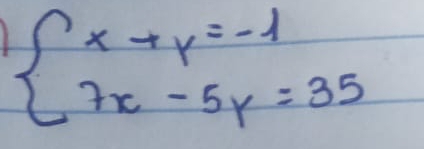 x + y = -1
7x - 5y = 35